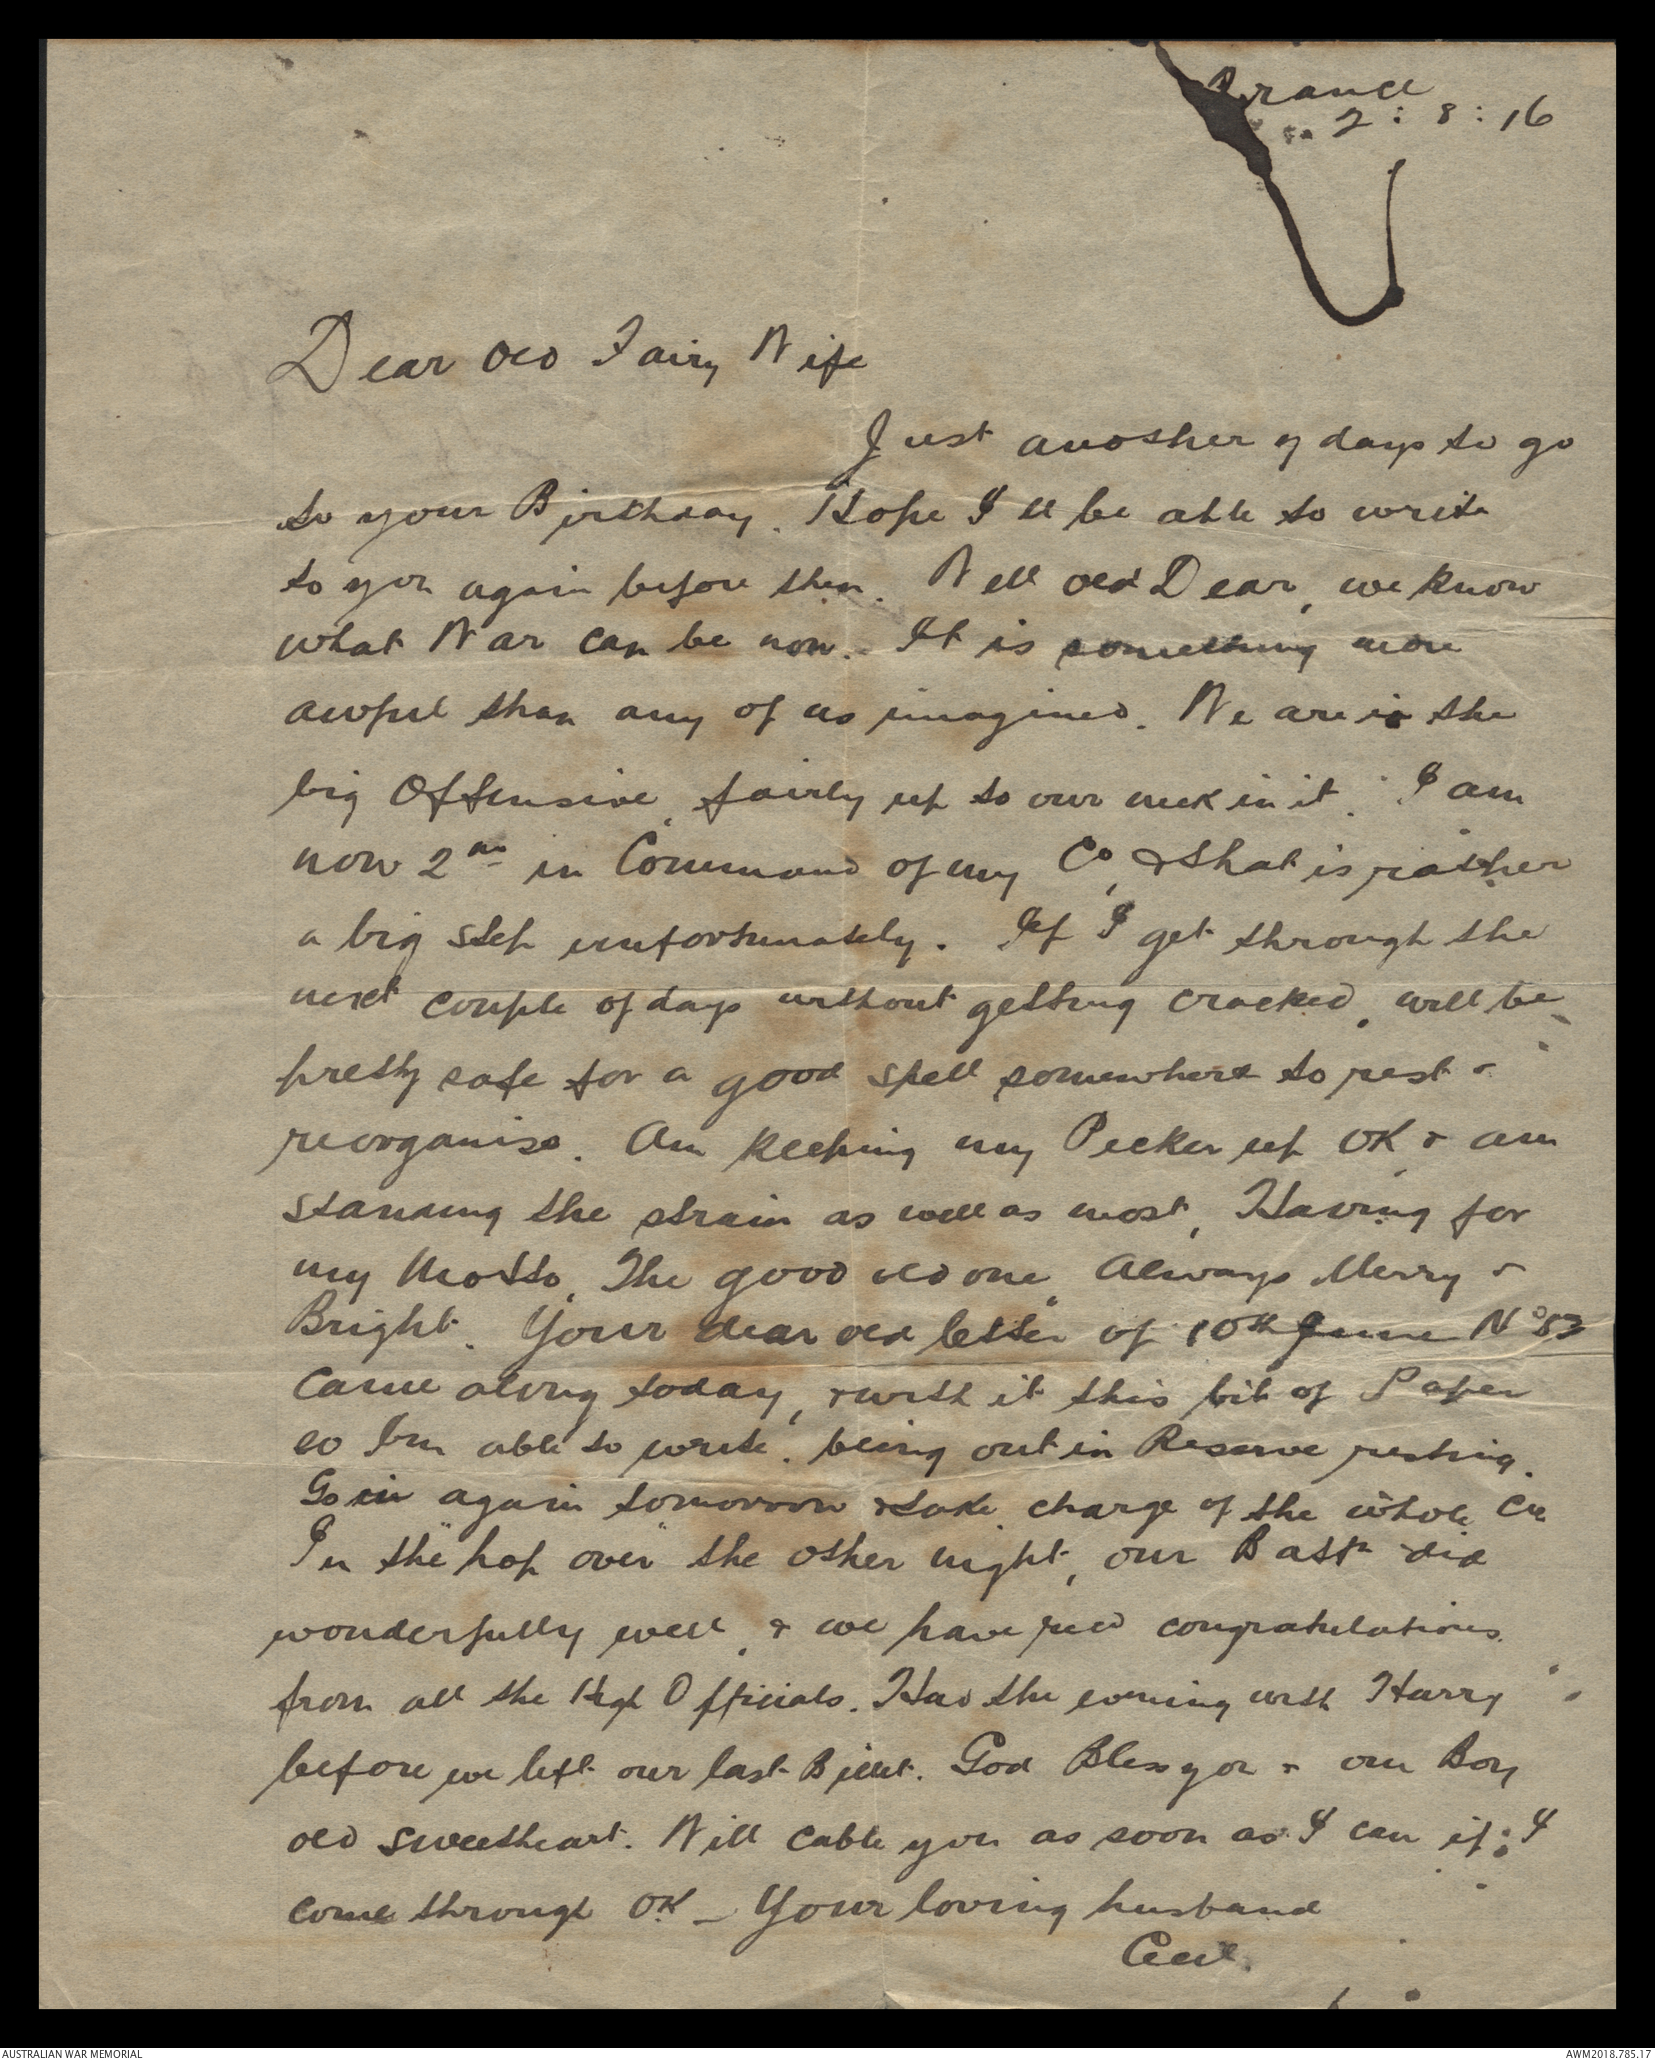 France
2 : 8 : 16
Dear Old Fairy Wife
Just another 7 days to go
to your Birthday. Hope I'll be able to write
to you again before then. Well old Dear, we know
what War can be now. It is something more
awful than any of us imagined. We are in the
big Offensive, fairly up to our neck in it. I am
now 2nd in Command of my Co, & that is rather
a big step unfortunately. If I get through the
next couple of days without getting cracked, will be
pretty safe for a good spell somewhere to rest &
reorganise. Am keeping my Pecker up OK & am
standing the strain as well as most, Having for
my Motto, The good old one, Always Merry &
Bright. Your dear old letter of 10th June No 53
came along today, & with it this bit of Paper
so I'm able to write, being out in Reserve resting.
Go in again tomorrow & take charge of the whole Co.
In the "hop over" the other night, our Battn did
wonderfully well, & we have recd congratulations
from all the High Officials. Had the evening with Harry
before we left our last Billet. God Bless you & our Boy
old sweetheart. Will cable you as soon as I can if I
come through OK – Your loving husband
Cecil.
AUSTRALIAN WAR MEMORIAL
AWM2018.785.17